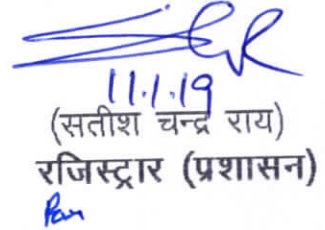 11.1.19
(सतीश चन्द्र राय)
रजिस्ट्रार (प्रशासन)